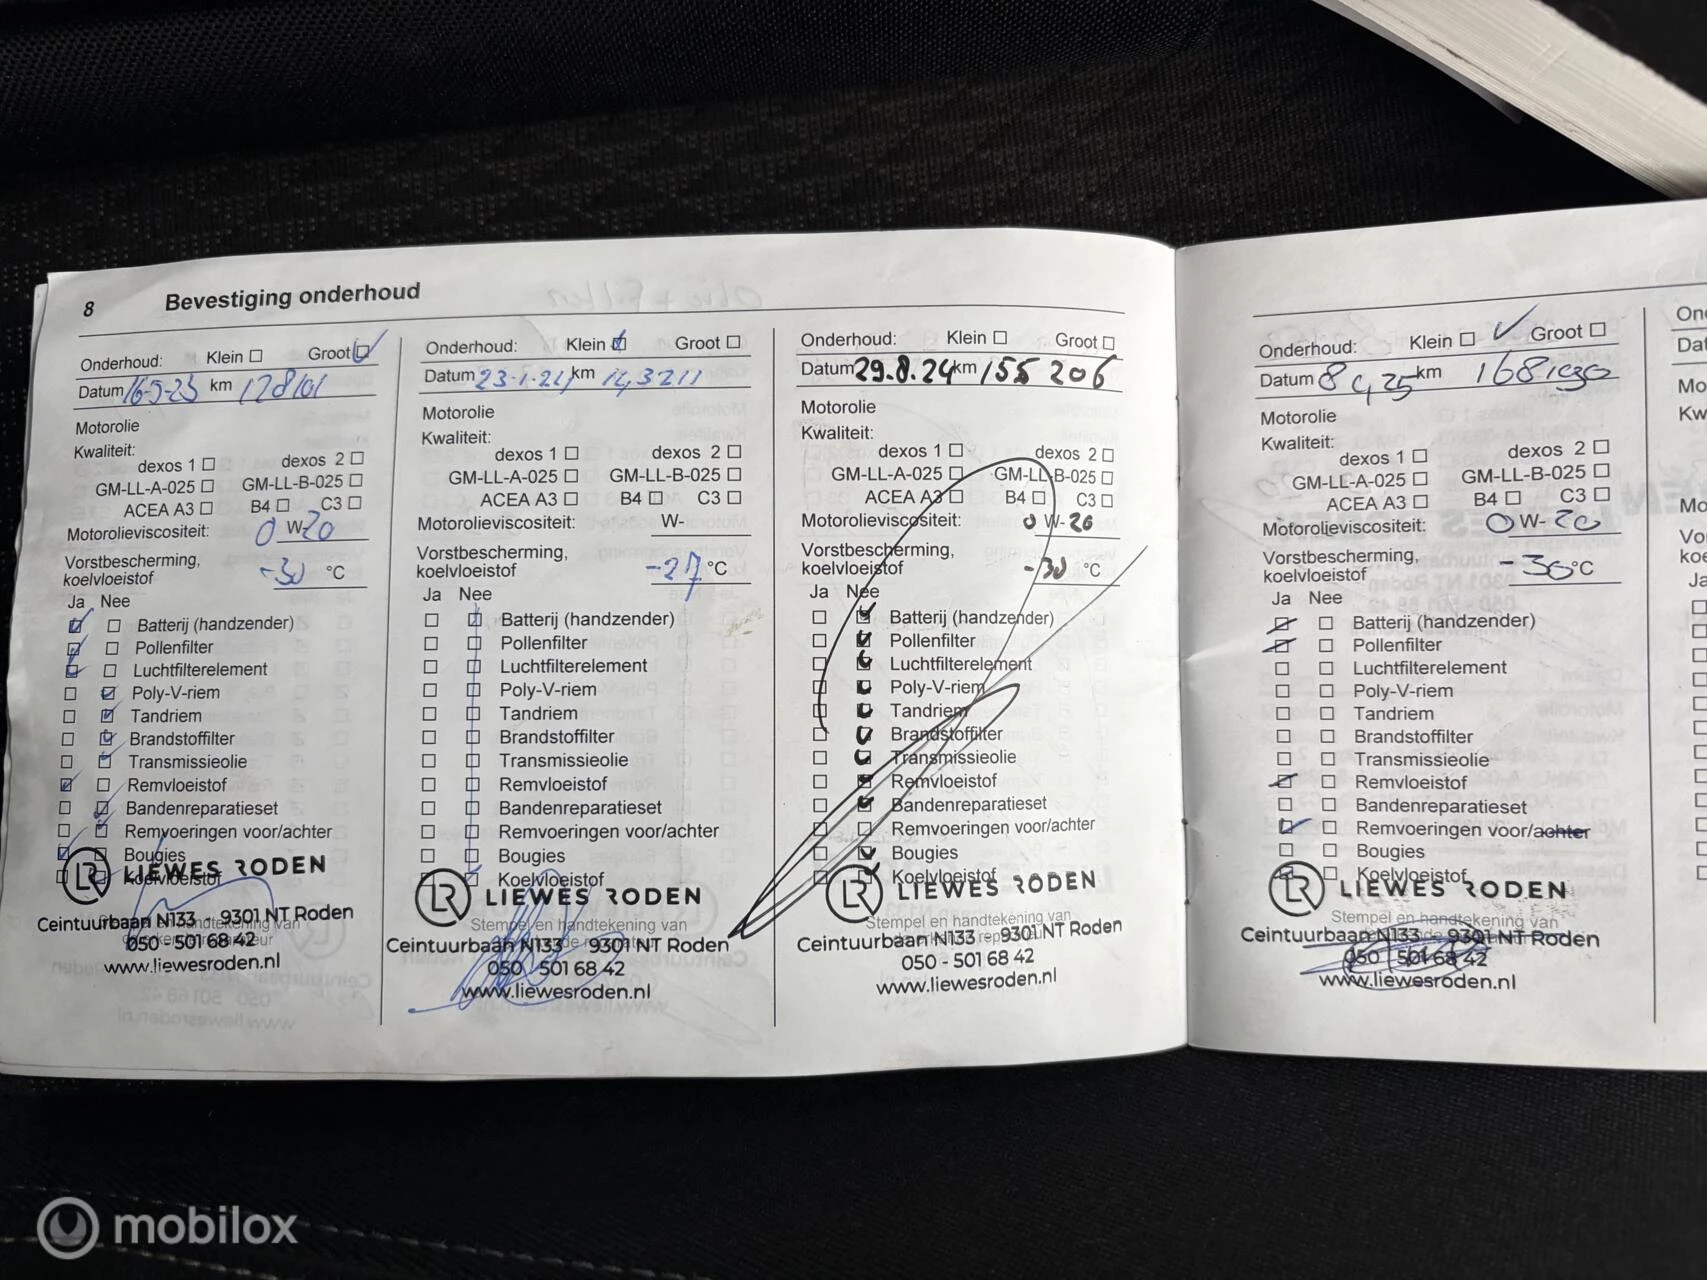 8 Bevestiging onderhoud
Onderhoud: Klein Groot
Datum 16-5-23 km 128101
Motorolie
Kwaliteit:
dexos 1 dexos 2
GM-LL-A-025 GM-LL-B-025
ACEA A3 B4 C3
Motorolieviscositeit: 0 W-20
Vorstbescherming,
koelvloeistof -30 °C
Ja Nee
Batterij (handzender)
Pollenfilter
Luchtfilterelement
Poly-V-riem
Tandriem
Brandstoffilter
Transmissieolie
Remvloeistof
Bandenreparatieset
Remvoeringen voor/achter
Bougies
Koelvloeistof
LR LIEWES RODEN
Ceintuurbaan N133 - 9301 NT Roden
050 - 501 68 42
www.liewesroden.nl
Onderhoud: Klein Groot
Datum 23-1-24 km 143211
Motorolie
Kwaliteit:
dexos 1 dexos 2
GM-LL-A-025 GM-LL-B-025
ACEA A3 B4 C3
Motorolieviscositeit: W-
Vorstbescherming,
koelvloeistof -27 °C
Ja Nee
Batterij (handzender)
Pollenfilter
Luchtfilterelement
Poly-V-riem
Tandriem
Brandstoffilter
Transmissieolie
Remvloeistof
Bandenreparatieset
Remvoeringen voor/achter
Bougies
Koelvloeistof
LR LIEWES RODEN
Stempel en handtekening van
Ceintuurbaan N133 9301 NT Roden
050 501 68 42
www.liewesroden.nl
Onderhoud: Klein Groot
Datum 29.8.24 km 155 206
Motorolie
Kwaliteit:
dexos 1 dexos 2
GM-LL-A-025 GM-LL-B-025
ACEA A3 B4 C3
Motorolieviscositeit: 0 W-20
Vorstbescherming,
koelvloeistof -30 °C
Ja Nee
Batterij (handzender)
Pollenfilter
Luchtfilterelement
Poly-V-riem
Tandriem
Brandstoffilter
Transmissieolie
Remvloeistof
Bandenreparatieset
Remvoeringen voor/achter
Bougies
Koelvloeistof
LR LIEWES RODEN
Stempel en handtekening van
Ceintuurbaan N133 - 9301 NT Roden
050 - 501 68 42
www.liewesroden.nl
Onderhoud: Klein Groot
Datum km
Motorolie
Kwaliteit:
dexos 1 dexos 2
GM-LL-A-025 GM-LL-B-025
ACEA A3 B4 C3
Motorolieviscositeit: 0 W-20
Vorstbescherming,
koelvloeistof -30 °C
Ja Nee
Batterij (handzender)
Pollenfilter
Luchtfilterelement
Poly-V-riem
Tandriem
Brandstoffilter
Transmissieolie
Remvloeistof
Bandenreparatieset
Remvoeringen voor/achter
Bougies
Koelvloeistof
LR LIEWES RODEN
Stempel en handtekening van
Ceintuurbaan N133 - 9301 NT Roden
050 501 68 42
www.liewesroden.nl
mobilox